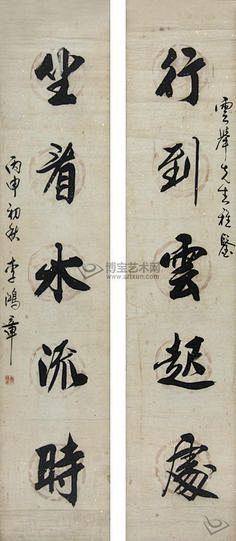 雲峰先生雅鑒
行到雲起處
坐看水流時
丙申初秋 李鴻章
博宝艺术网
www.artxun.com